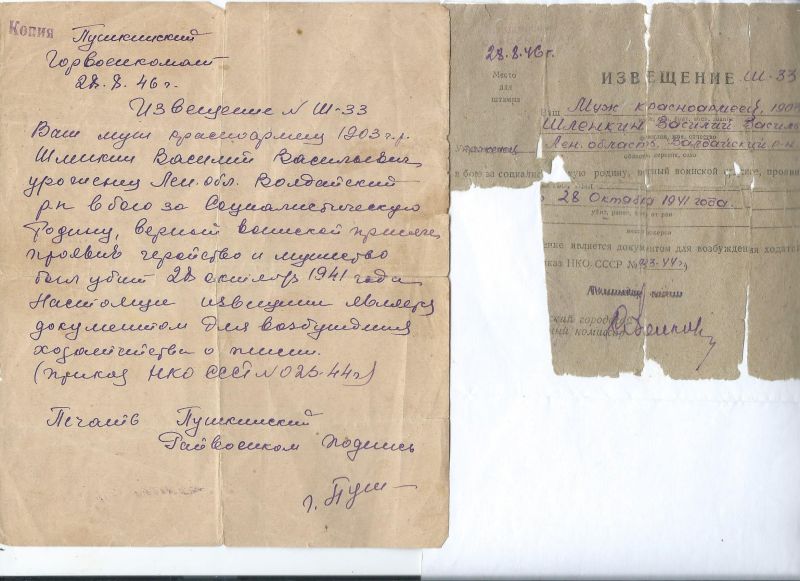 Копия
Пушкинский
Горвоенкомат
28.8.46 г.
Извещение N Ш-33
Ваш муж красноармеец 1903 г.р.
Шленкин Василий Васильевич
уроженец Лен. обл. Валдайский
р-н в бою за Социалистическую
Родину, верной воинской присяге,
проявив геройство и мужество
был убит 28 октября 1941 года
Настоящие извещении является
документом для возбуждения
ходатайства о пенсии.
(приказ НКО СССР N 023-44г)
Печать Пушкинский
Райвоенком подпись
г. Пуш
28.8.46г.
Место
для
штампа
ИЗВЕЩЕНИЕ Ш-33
Ваш Муж красноармеец, 190
Шленкин Василий Василь
Уроженец Лен. область, Валдайский р-н
в бою за социали ую родину, верный воинской присяге, прояви
28 Октября 1941 года.
ение является документом для возбуждения ходатай
каз НКО СССР № 023-44г,
ский городс
ный комисса